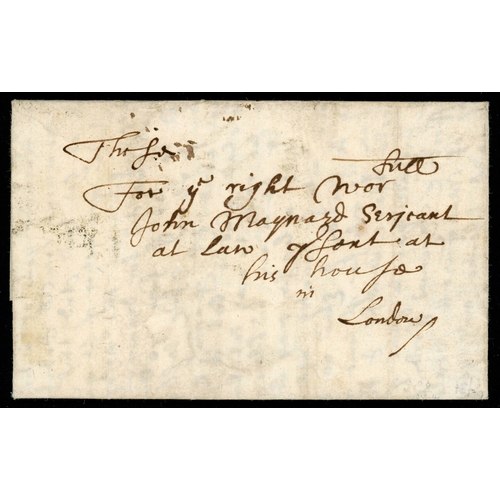 These
For ye right Worfull
John Maynard Serjeant
at law psent at
his house
in
London